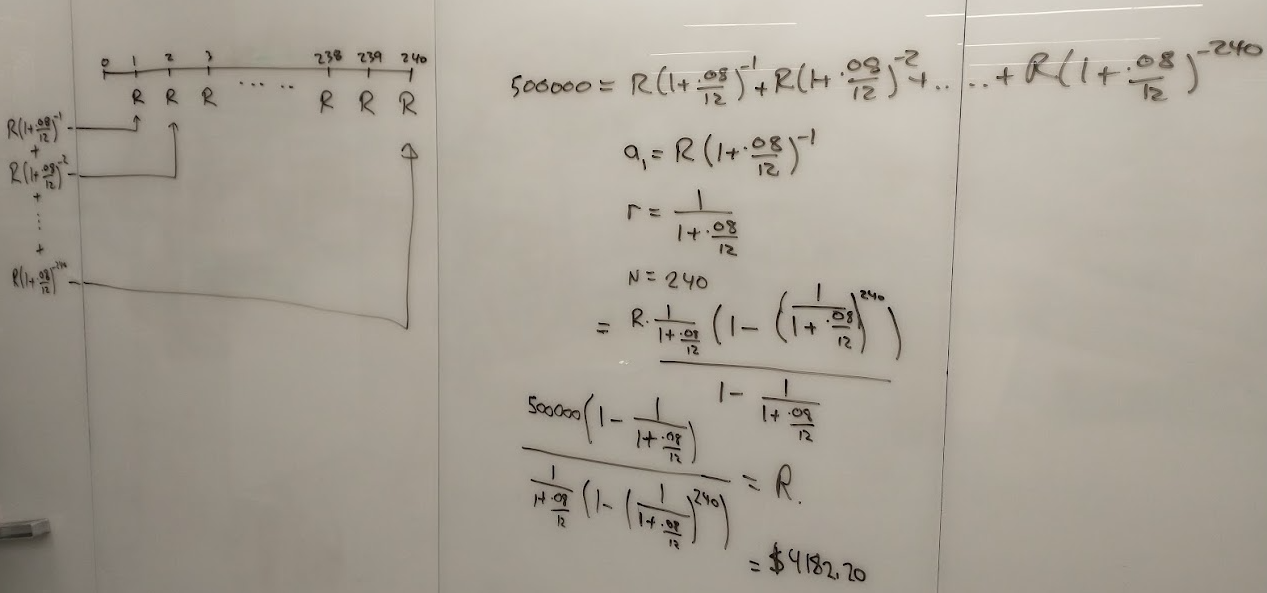 0 1 2 3 238 239 240
R R R ... .. R R R
R(1+.08/12)^-1
+
R(1+.08/12)^-2
+
⋮
+
R(1+.08/12)^-240
500000 = R(1+.08/12)^-1 + R(1+.08/12)^-2 + .. .. + R(1+.08/12)^-240
a₁ = R(1+.08/12)^-1
r = 1/(1+.08/12)
N = 240
= R·1/(1+.08/12) (1-(1/(1+.08/12))^240) / (1 - 1/(1+.08/12))
500000(1 - 1/(1+.08/12)) / (1/(1+.08/12) (1-(1/(1+.08/12))^240)) = R.
= $4182.20